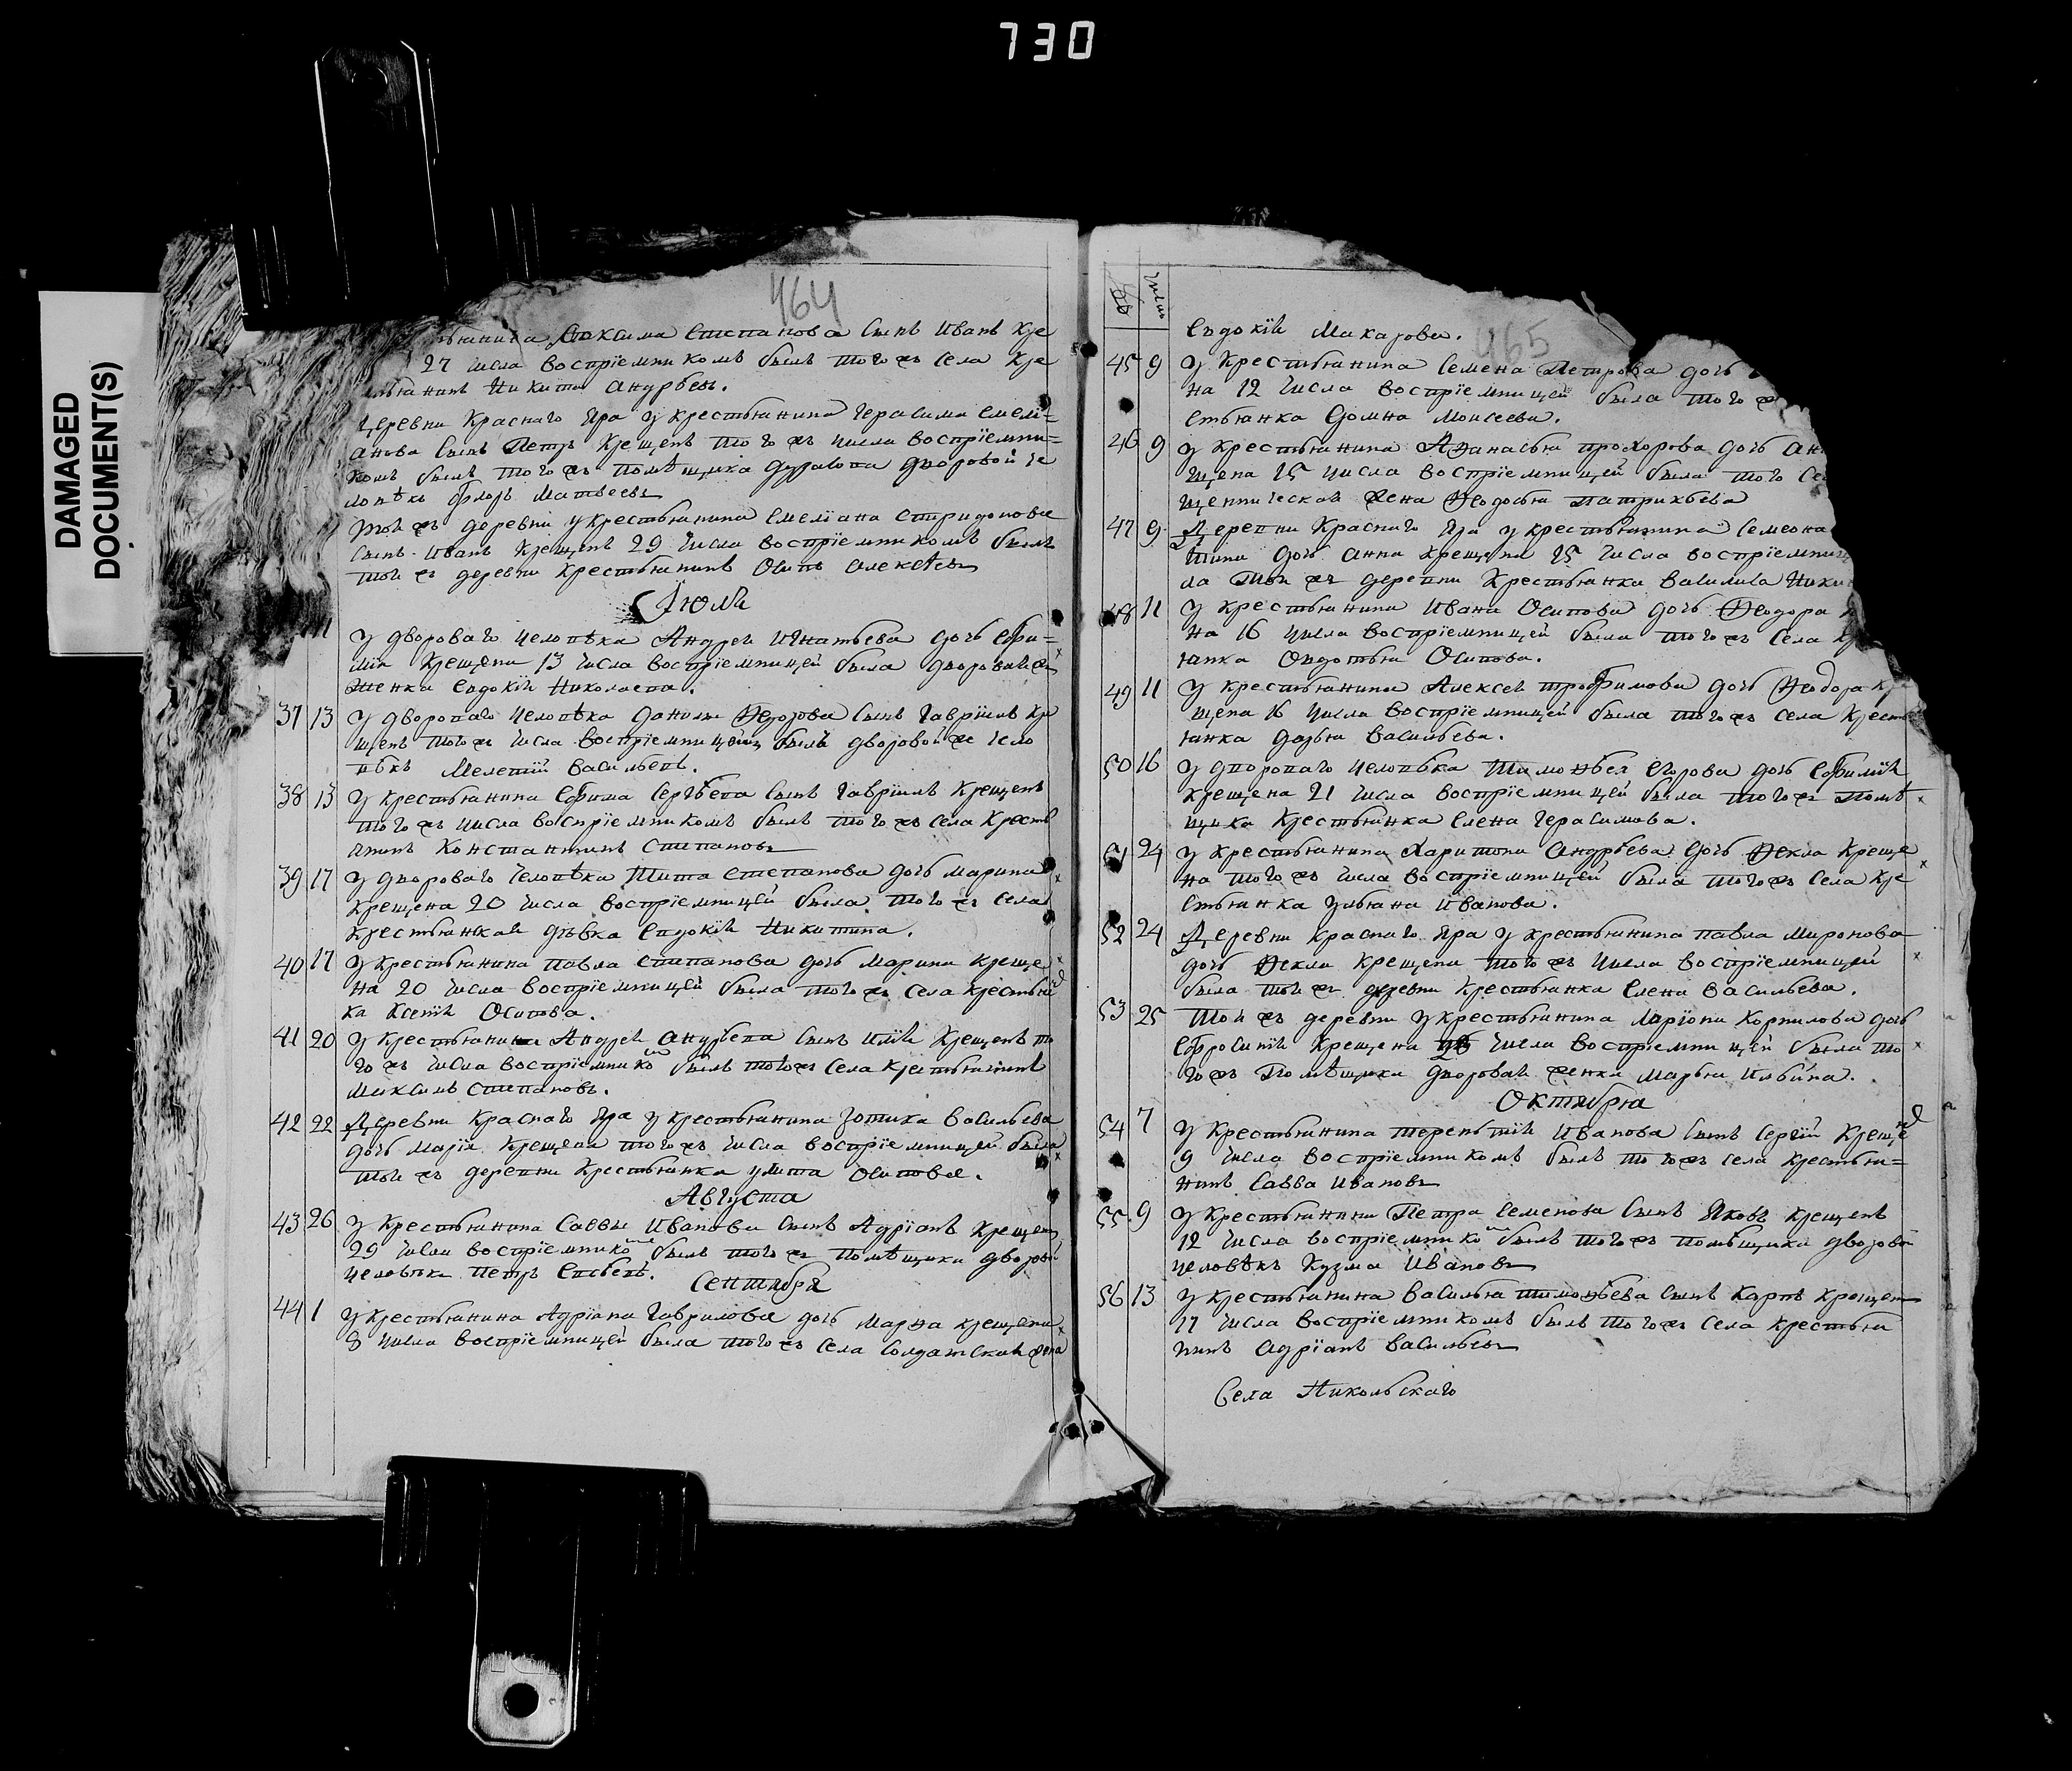 730
DAMAGED
DOCUMENT(S)
464
Максима Степанова сынъ Иванъ кре
27 числа восприемникомъ былъ того жъ села кре
стьянинъ Никита Андреевъ.
Деревни Краснаго Яра у крестьянина Герасима Емелі=
анова сынъ Петръ крещенъ того жъ числа воспріемни=
комъ былъ того жъ помѣщика дворовой че
ловѣкъ Флоръ Матвеевъ
той жъ деревни у крестьянина Емеліана Спридонова
сынъ Иванъ крещенъ 29 числа воспріемникомъ былъ
той жъ деревни крестьянинъ Осипъ Алексѣевъ
Іюля
11 у двороваго человѣка Андрея Игнатьева дочь Ефи=
мія крещена 13 числа воспріемницей была дворовая же
женка Евдокія Николаева.
37 13 у двороваго человѣка Данилы Ѳедорова сынъ Гавріилъ кре
щенъ того жъ числа воспріемницей былъ дворовой же чело
вѣкъ Мелетій Васильевъ.
38 13 у крестьянина Ефима Сергѣева сынъ Гавріилъ крещенъ
того жъ числа воспріемникомъ былъ того жъ села крестья
янинъ Константинъ Степановъ
39 17 у двороваго человѣка Тита Степанова дочь Марина
крещена 20 числа воспріемницей была того жъ села
крестьянская дѣвка Евдокія Никитина.
40 17 у крестьянина Павла Степанова дочь Марина креще
на 20 числа воспріемницей была того жъ села крестьян
ка Ксенія Осипова.
41 20 у крестьянина Андрея Андрѣева сынъ Илія крещенъ то
го жъ числа воспріемникомъ былъ того жъ села крестьянинъ
Максимъ Степановъ.
42 22 Деревни Краснаго Яра у крестьянина Зотика Васильева
дочь Марія крещена того жъ числа воспріемницей была
той жъ деревни крестьянка Улита Осипова.
Августа
43 26 у крестьянина Саввы Иванова сынъ Адріанъ крещенъ
29 числа воспріемникомъ былъ того жъ помѣщика дворовой
человѣкъ Петръ Евсѣевъ.
Сентября
44 1 у крестьянина Адріана Гаврилова дочь Марѳа крещена
8 числа воспріемницей была того жъ села солдатская жена
465
Число
Евдокія Макарова.
45 9 у крестьянина Семена Петрова дочь
на 12 числа воспріемницей была того ж
стьянка Домна Моисеева.
46 9 у крестьянина Аѳанасья Прохорова дочь Ан
щена 15 числа воспріемницей была того се
щенническая жена Ѳедосья Патрикѣева
47 9 Деревни Краснаго Яра у крестьянина Семеона
тина дочь Анна крещена 15 числа воспріемниц
ла той жъ деревни крестьянка Василиса Ники
48 11 у крестьянина Ивана Осипова дочь Ѳеодора
на 16 числа воспріемницей была того жъ села кр
янка Овдотья Осипова.
49 11 у крестьянина Алексея Трофимова дочь Ѳеодора кре
щена 16 числа воспріемницей была того жъ села крест
янка Дарья Васильева.
50 16 у двороваго человѣка Тимоѳея Егорова дочь Ефимія
крещена 21 числа воспріемницей была того жъ помѣ
щика крестьянка Елена Герасимова.
51 24 у крестьянина Харитона Андрѣева дочь Ѳекла креще
на того жъ числа воспріемницей была того жъ села кре
стьянка Ульяна Иванова.
52 24 Деревни Краснаго Яра у крестьянина Павла Миронова
дочь Ѳекла крещена того жъ числа воспріемницей
была той жъ деревни крестьянка Елена Васильева.
53 25 той жъ деревни у крестьянина Ларіона Корнилова дочь
Ефросинія крещена числа воспріемницей была то
го жъ помѣщика дворовая женка Марья Ильина.
Октября
54 7 у крестьянина Терентія Иванова сынъ Сергій крещенъ
9 числа воспріемникомъ былъ того жъ села крестья=
нинъ Савва Ивановъ
55 9 у крестьянина Петра Семенова сынъ Яковъ крещенъ
12 числа воспріемникомъ былъ того жъ помѣщика дворовой
человѣкъ Кузма Ивановъ
56 13 у крестьянина Василья Тимоѳѣева сынъ Карпъ крещенъ
17 числа воспріемникомъ былъ того жъ села крестья
нинъ Адріанъ Васильевъ
Села Никольскаго